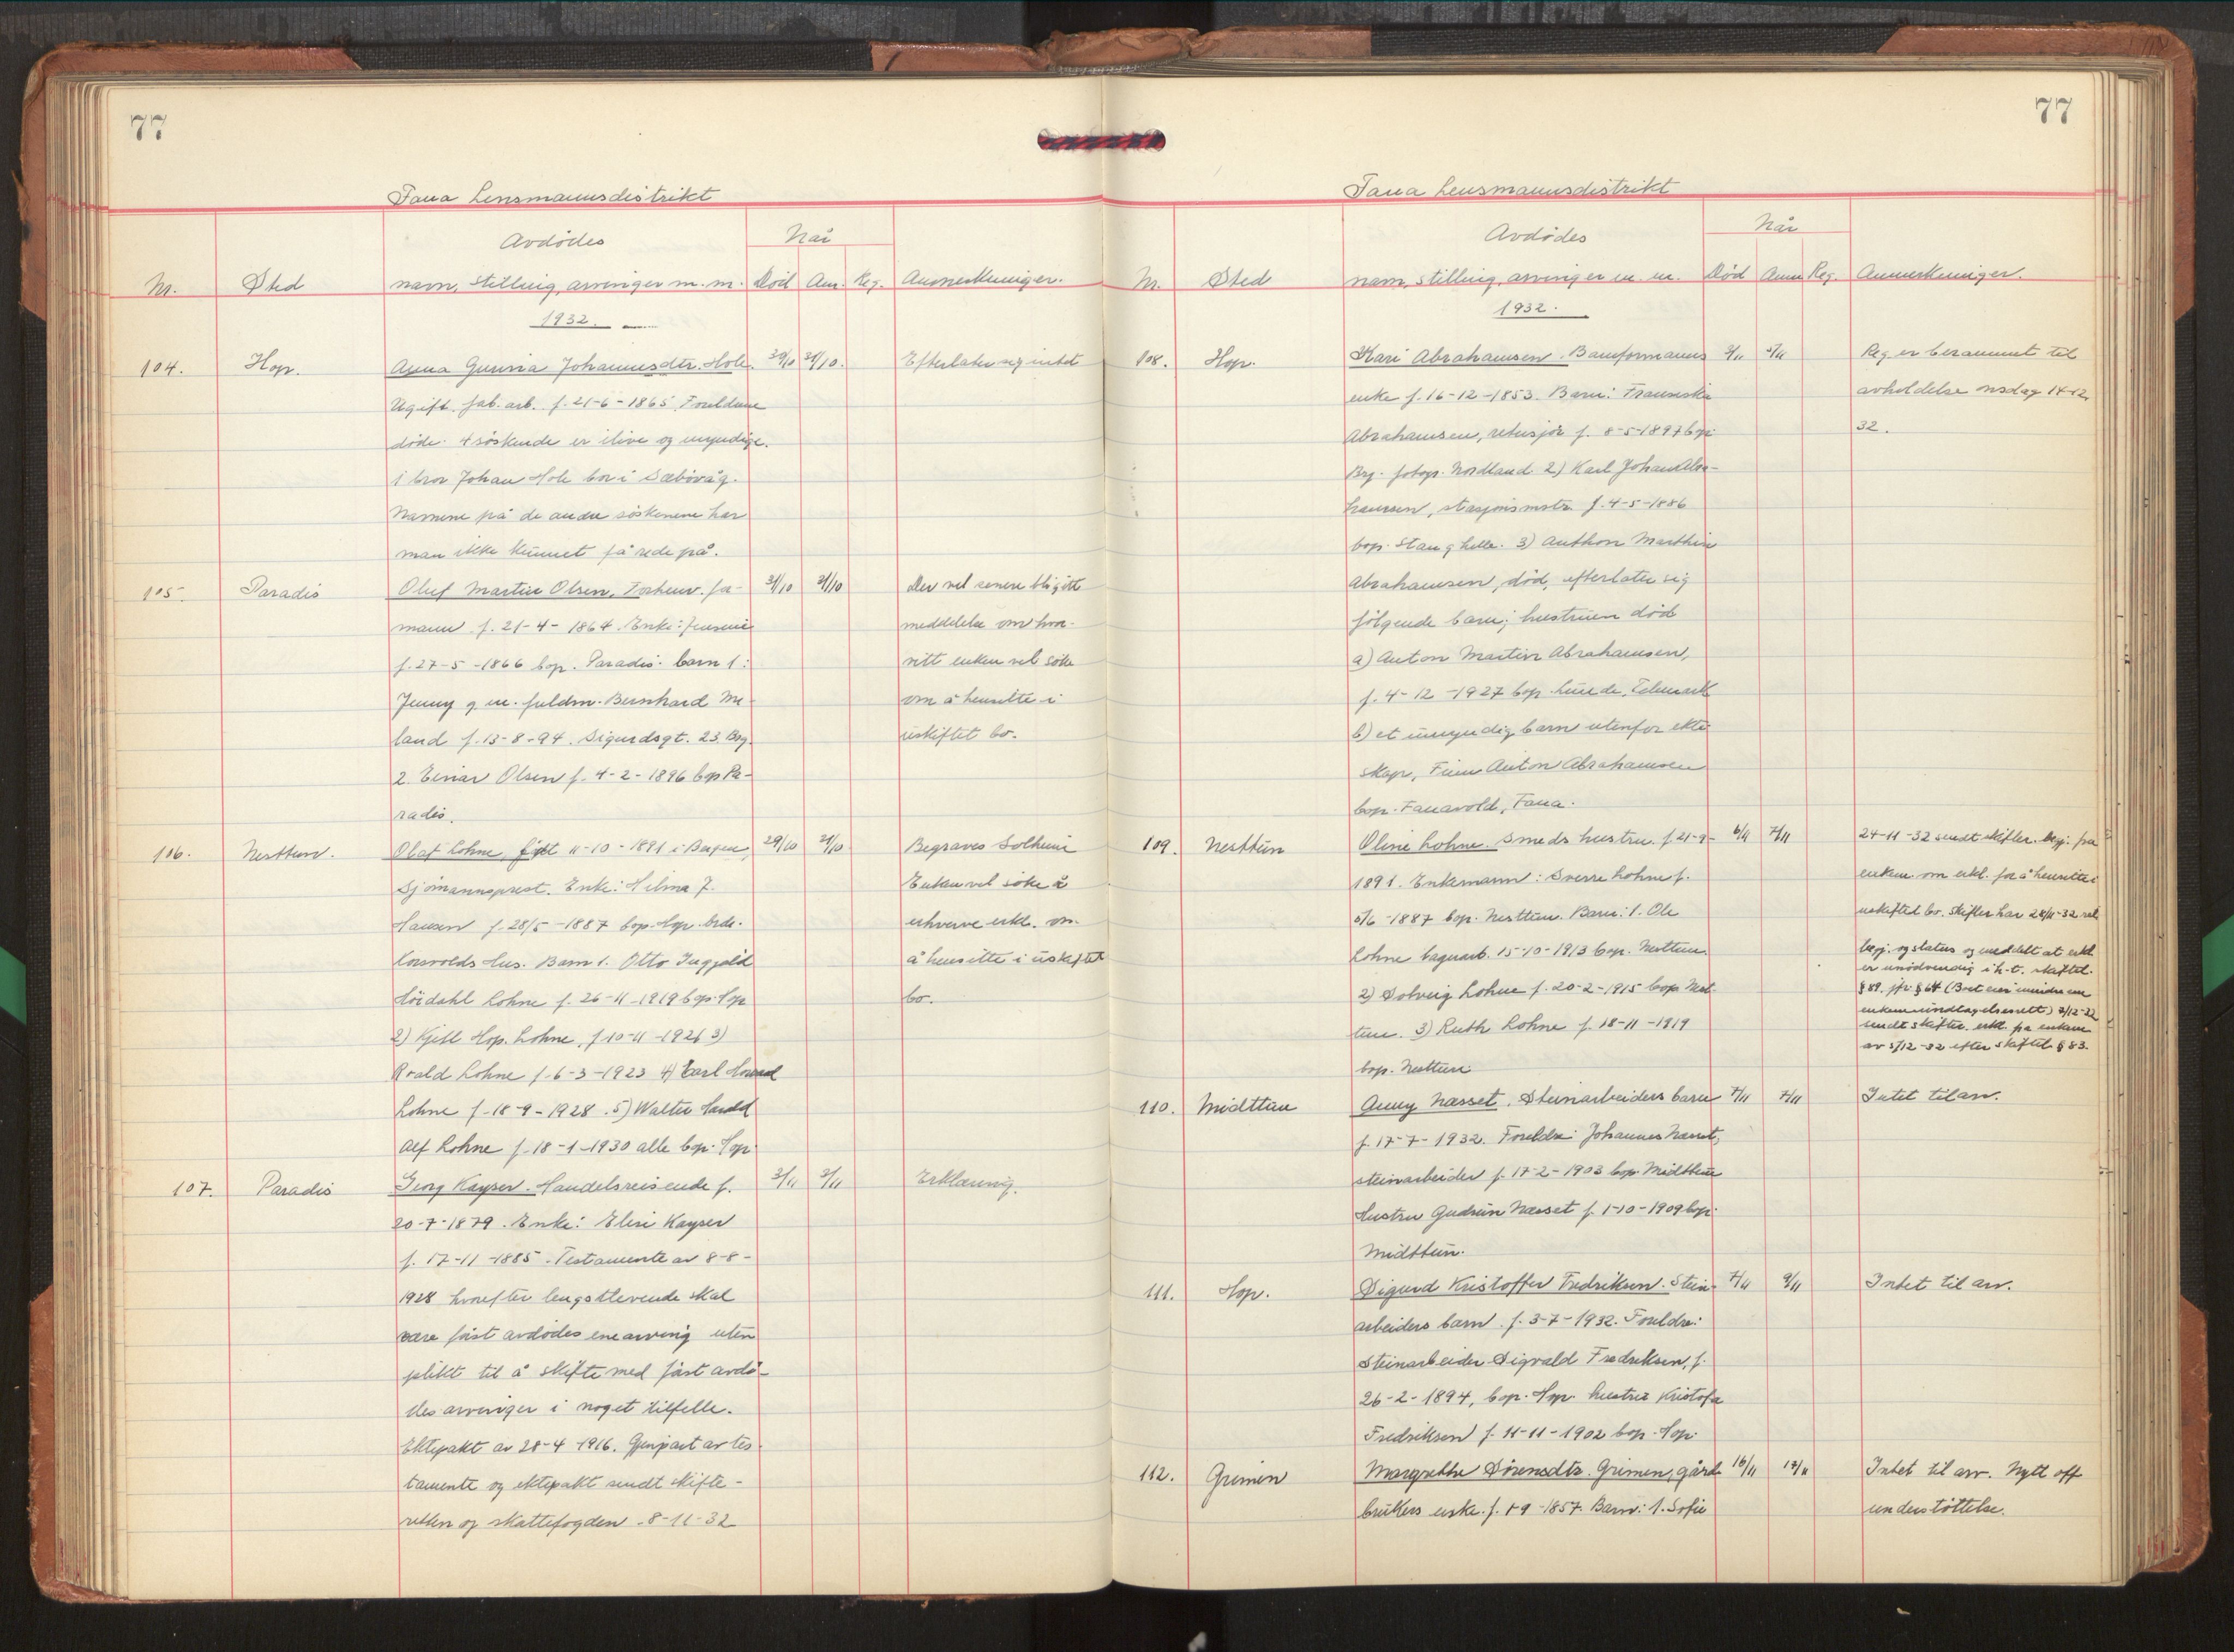 77
Fana Lensmannsdistrikt
Avdødes
Når
Nr. Sted navn, stilling, arvinger m.m. Død Anm. Reg. Anmerkninger.
1932.
104. Hop. Anna Gurina Johannesdtr. Hole. 30/10 31/10. Efterlater sig intet
Ugift. fab. arb. f. 21-6-1865. Foreldrene
døde. 4 söskende er ilive og myndige.
1 bror Johan Hole bor i Sæbövåg.
Navnene på de andre söskenene har
man ikke kunnet få rede på.
105. Paradis Oluf Martin Olsen. Forhenv. for- 31/10 31/10 Der vil senere bli gitt
mann f. 21-4-1864. Enke: Jensine meddelelse om hvor-
f. 27-5-1866 bop. Paradis. barn 1: vitt enken vil söke
Jenny g.m. fuldm. Bernhard Me- om å hensitte i
land f. 13-8-94. Sigurdsgt. 23 Brg. uskiftet bo.
2. Einar Olsen f. 4-2-1896 bop Pa-
radis.
106. Nesttun. Olaf Lohne, født 11-10-1891 i Bergen, 29/10 31/10 Begraves Solheim
Sjømannsprest. Enke: Hilma J. Enken vil söke å
Hansen f. 28/5-1887 bop. Hop. erhverve erkl. om
Hus. Barn 1. Otto Ingjald å hensitte i uskiftet
Lohne f. 26-11-1919 bop. Hop bo.
2) Kjell Hop. Lohne, f 10-11-1921 3)
Roald Lohne f. 6-3-1923 4) Carl
Lohne f. 18-9-1928. 5) Walter Harald
Alf Lohne f. 18-1-1930 alle bop. Hop
107. Paradis Georg Kayser. Handelsreisende f. 2/11 3/11 Erklæring.
20-7-1879. Enke: Elise Kayser
f. 17-11-1885. Testamente av 8-8-
1928 hvorefter lengstlevende skal
være först avdødes enearving uten
plikt til å skifte med först avdö-
des arvinger i noget tilfelle.
Ektepakt av 28-4 1916. Gjenpart av tes-
tamente og ektepakt sendt skifte-
retten og skattefogden 8-11-32
77
Fana Lensmannsdistrikt
Avdødes
Når
Nr. Sted navn, stilling, arvinger m.m. Død Anm Reg. Anmerkninger.
1932.
108. Hop. Kari Abrahamsen. Baneformanns Reg er berammet til
enke f. 16-12-1853. Barn: Fransiska avholdelse onsdag 14-12
Abrahamsen, retusjør f. 8-5-1897 bop. 32.
Nordland 2) Karl Johan Abra-
hamsen, stasjonsmstr. f. 4-5-1886
bop. Stanghelle. 3) Anthon Marthin
Abrahamsen, død, efterlater sig
fölgende barn; hustruen död
a) Anton Martin Abrahamsen,
f. 4-12-1927 bop. Lunde, Telemark
b) et umyndig barn utenfor ekte
skap, Finn Anton Abrahamsen
bop. Fanavold, Fana.
109. Nesttun Oline Lohne. Smeds hustru. f 21-9- 6/11 7/11 24-11-32 sendt skifter. begj. fra
1891. Enkemann: Sverre Lohne f. enkem. om erkl. for å hensitte i
5/6-1887 bop. Nesttun. Barn: 1. Ole uskiftet bo. Skifter har 28/11-32
Lohne bagerarb. 15-10-1913 bop. Nesttun begj. og status og meddelt at erkl.
er unödvendig i h.t. skiftel.
2) Solveig Lohne f. 20-2-1915 bop Nest- § 89. jfr. § 64 (Boet eier mindre enn
enkem. 2/12-32
tun. 3) Ruth Lohne f. 18-11-1919 sendt skifter. erkl. fra enkem
av 2/12-32 efter skiftel § 83.
bop. Nesttun
110. Midttun Anny Næsset. Steinarbeiders barn 7/11 7/11 Intet til arv.
f. 17-7-1932. Foreldre: Johannes Næsset,
steinarbeider f. 17-2-1903 bop Midttun
Hustru Gudrun Næsset f. 1-10-1909 bop.
Midttun.
111. Hop. Sigurd Kristoffer Fredriksen. Stein- 7/11 9/11 Intet til arv.
arbeiders barn. f. 3-7-1932. Foreldre:
Steinarbeider Sigvald Fredriksen, f.
26-2-1894, bop. Hop. hustru Kristofa
Fredriksen f. 11-11-1902 bop. Hop.
112. Grimen Margrethe Sörensdtr. Grimen, gård- 16/11 17/11 Intet til arv. Nytt off
brukers enke. f. 1-9-1857. Barn: 1. Sofie understöttelse.